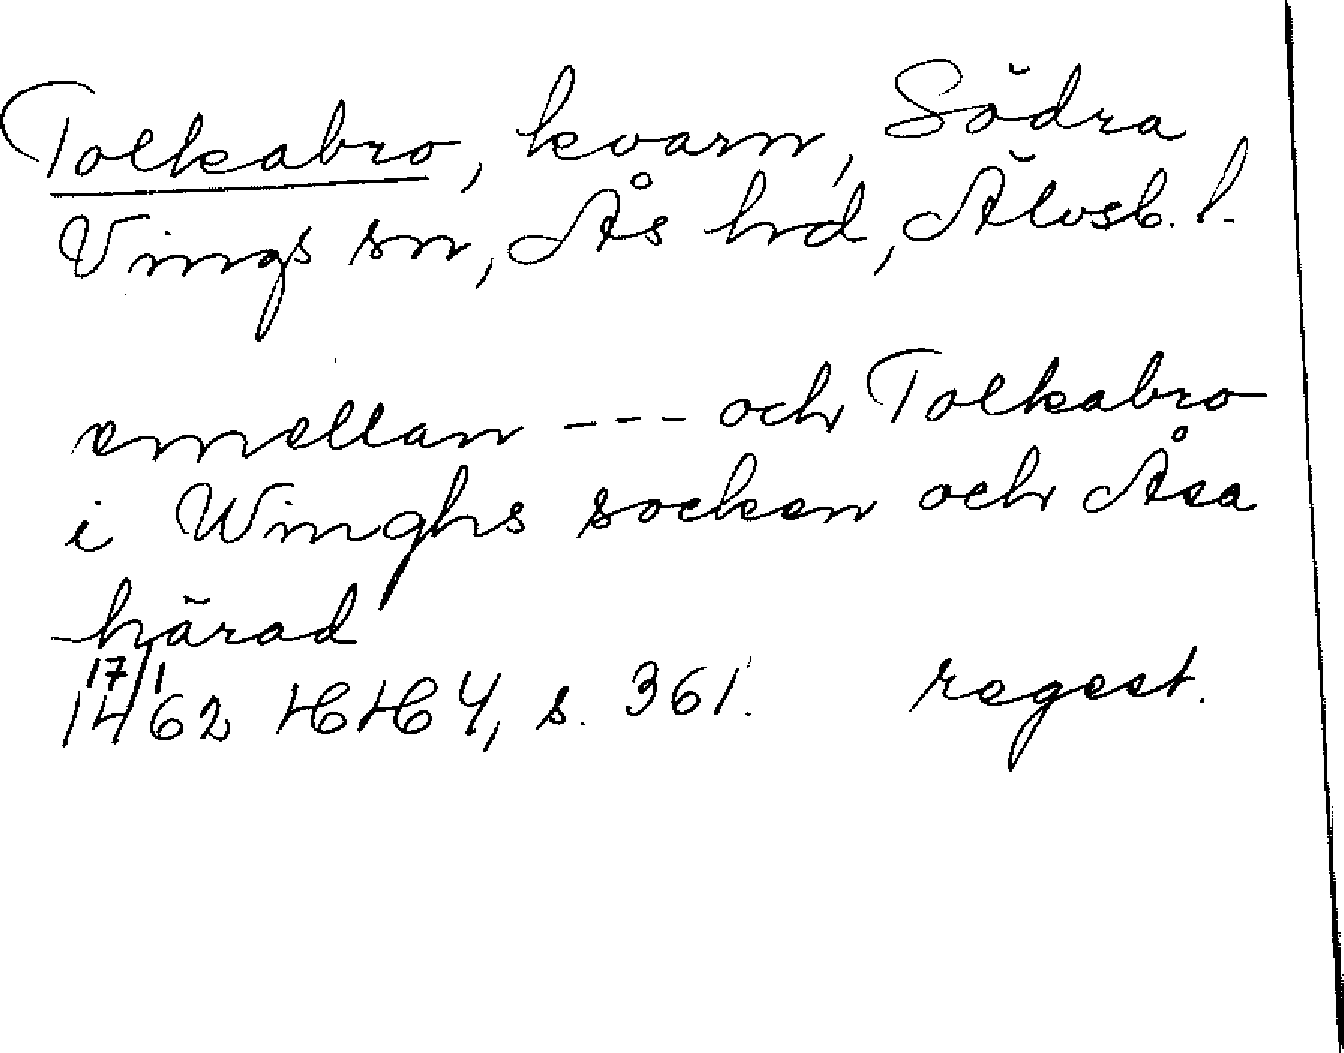 Tolkabro, kvarn, Södra
Vings sn, Ås hd, Älvsb. l.
emellan --- och Tolkabro
i Winghs socken och Åsa
härad
17/1
1462 HH 4, s. 361. regest.